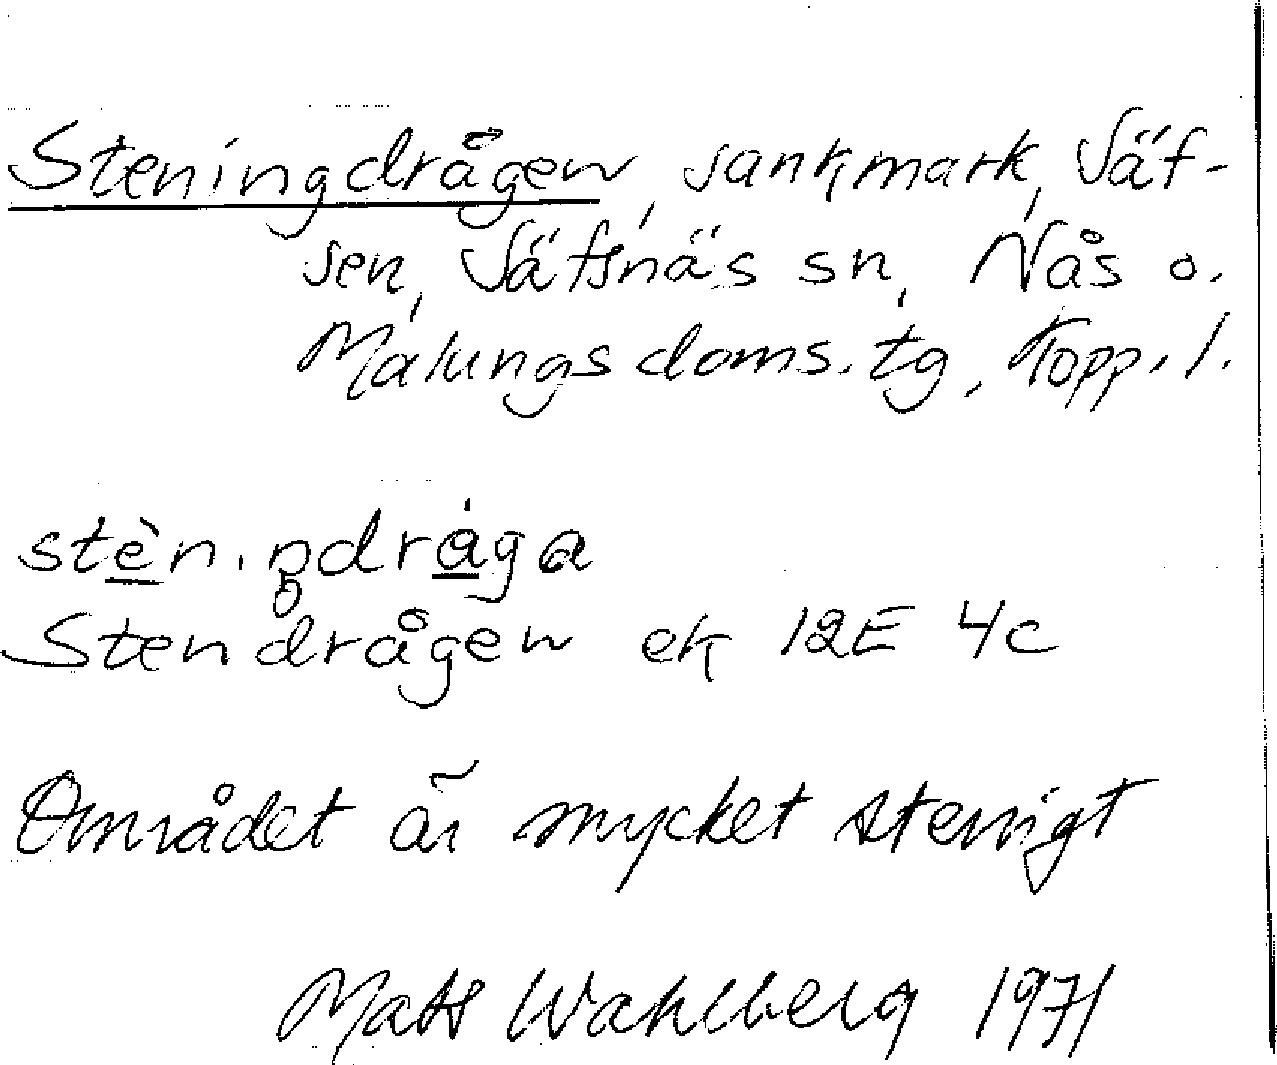 Steningdrågen, sankmark, Säf-
sen, Säfsnäs sn, Nås o.
Malungs doms. tg, Kopp. l.
stèn.ŋdrága
Stendrågen ek 12E 4c
Området är mycket stenigt
Mats Wahlberg 1971